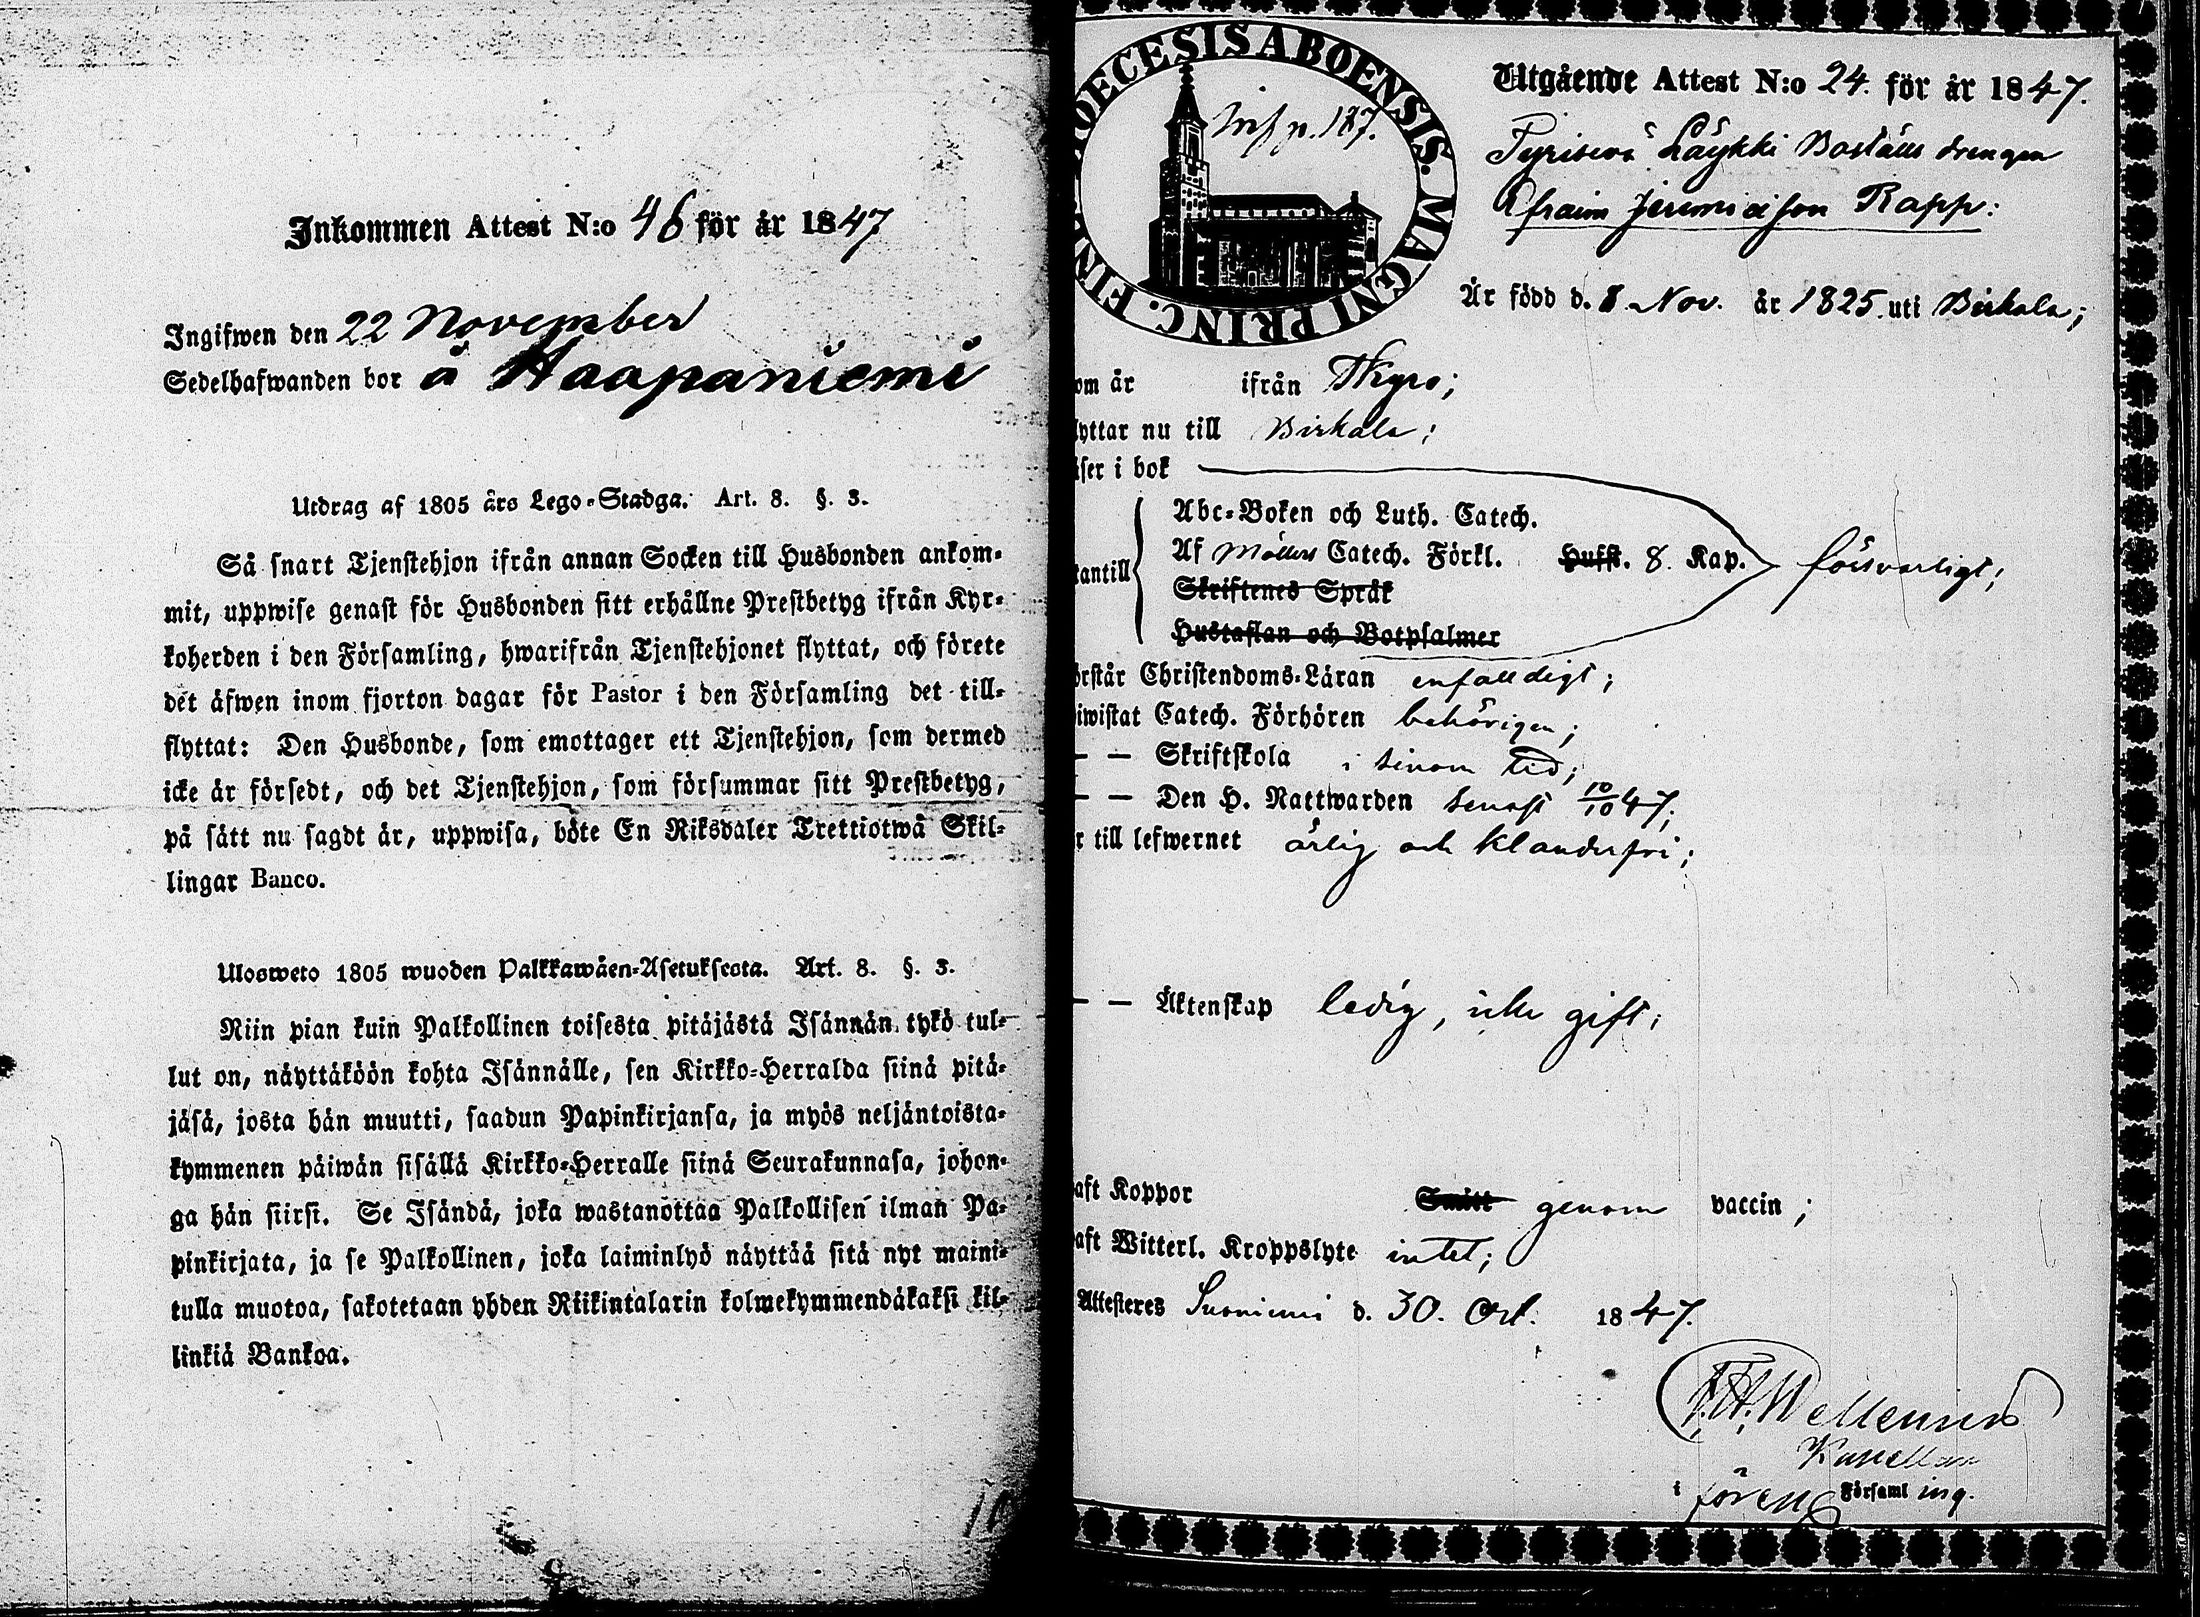 Inkommen Attest N:o 46 för år 1847
Ingifwen den 22 November
Sedelhafwanden bor å Haapaniemi
Utdrag af 1805 års Lego-Stadga. Art. 8. §. 3.
Så snart Tjenstehjon ifrån annan Socken till Husbonden ankom-
mit, uppwise genast för Husbonden sitt erhållne Prestbetyg ifrån Kyr-
koherden i den Församling, hwarifrån Tjenstehjonet flyttat, och förete
det äfwen inom fjorton dagar för Pastor i den Församling det till-
flyttat: Den Husbonde, som emottager ett Tjenstehjon, som dermed
icke är försedt, och det Tjenstehjon, som försummar sitt Prestbetyg,
på sätt nu sagdt är, uppwisa, böte En Riksdaler Trettiotwå Skil-
lingar Banco.
Ulosweto 1805 wuoden Palkkawäen-Asetuksesta. Art. 8. §. 3.
Niin pian kuin Palkollinen toisesta pitäjästä Isännän tykö tul-
lut on, näyttäköön kohta Isännälle, sen Kirkko-Herralda siinä pitä-
jäsä, josta hän muutti, saadun Papinkirjansa, ja myös neljäntoista-
kymmenen päiwän sisällä Kirkko-Herralle siinä Seurakunnasa, johon-
ga hän siirsi. Se Isändä, joka wastanottaa Palkollisen ilman Pa-
pinkirjata, ja se Palkollinen, joka laiminlyö näyttää sitä nyt maini-
tulla muotoa, sakotetaan yhden Riikintalarin kolmekymmendäkaksi kil-
linkiä Bankoa.
DIOECESIS ABOENSIS. MAGNI PRINC. FIN
p. 187.
Utgående Attest N:o 24. för år 1847.
Läykki Bostäus drengen
Efraim Jeremiaeson Rapp:
Är född d. 8 Nov. år 1825. uti Birkala;
om år ifrån Tkyro;
lyttar nu till Birkala;
äser i bok
Abc-Boken och Luth. Catech.
Af Möllers Catech. Förkl. Hufst. 8. Kap. försvarligt;
tantill
Skriftenes Språk
Hustaflan och Botpsalmer
örstår Christendoms-Läran enfalldigt;
iwistat Catech. Förhören behörigen;
— — Skriftskola i sinom tid;
— — Den H. Nattwarden senast 10/10 47;
r till lefwernet ärlig och klanderfri;
— — Äktenskap ledig, icke gift;
aft Koppor Smitt genom vaccin;
aft Witterl. Kroppslyte intet;
Attesteres Suoniemi d. 30. Oct. 1847.
Kapellan
i föreng Församl ing.